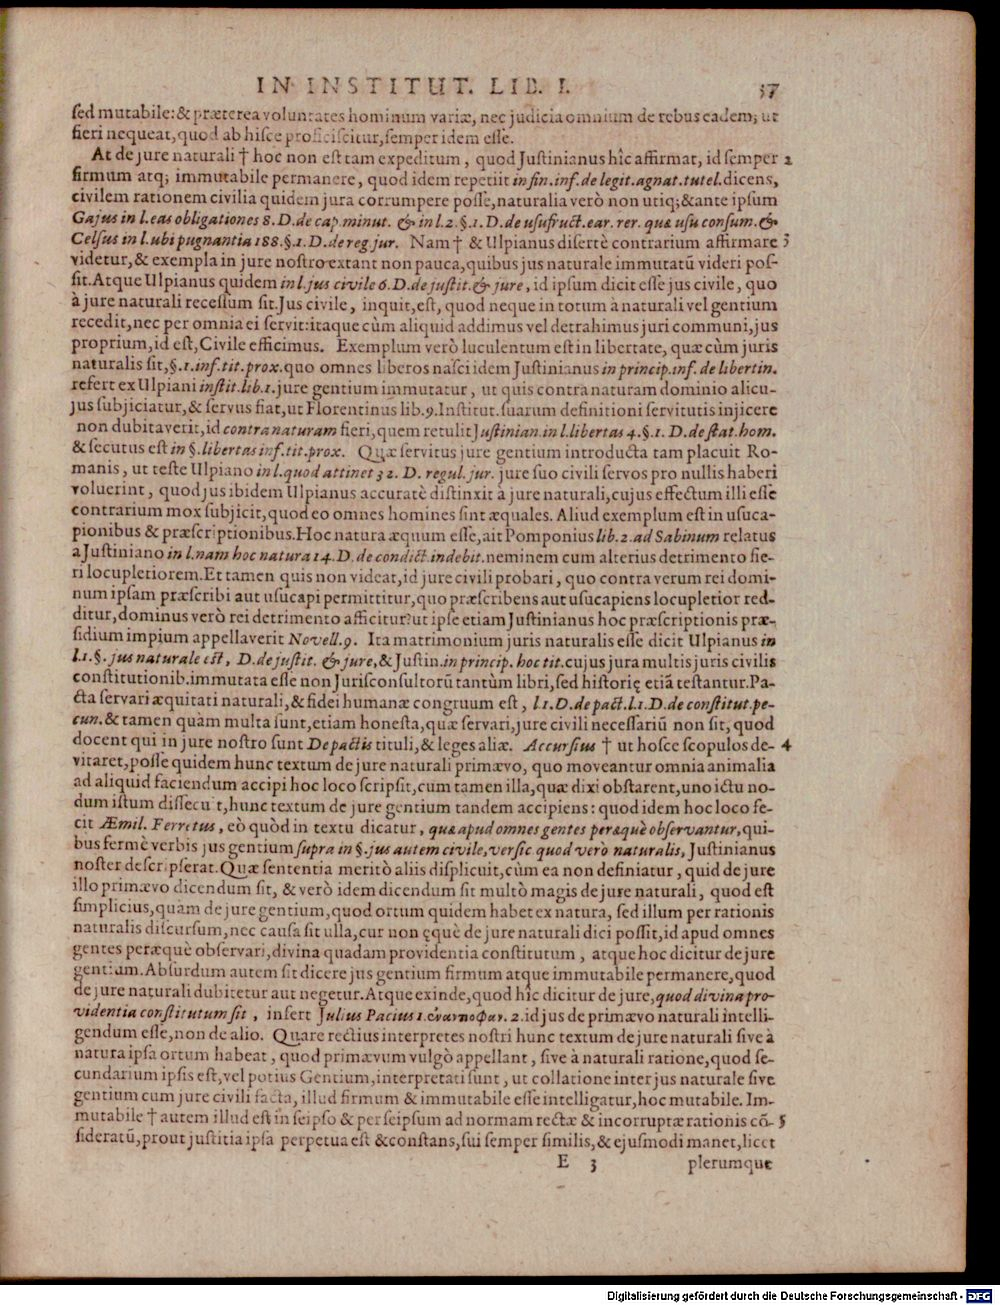 IN INSTITUT. LIB. I. 37
sed mutabile: & præterea voluntates hominum variæ, nec judicia omnium de rebus eadem; ut
fieri nequeat, quod ab hisce proficiscitur, semper idem esse.
At de jure naturali † hoc non est tam expeditum, quod Justinianus hîc affirmat, id semper 2
firmum atq; immutabile permanere, quod idem repetiit in fin. inf. de legit. agnat. tutel. dicens,
civilem rationem civilia quidem jura corrumpere posse, naturalia verò non utiq; & ante ipsum
Gajus in l. eas obligationes 8. D. de cap. minut. & in l. 2. §. 1. D. de usufruct. ear. rer. quæ usu consum. &
Celsus in l. ubi pugnantia 188. §. 1. D. de reg. jur. Nam † & Ulpianus disertè contrarium affirmare 3
videtur, & exempla in jure nostro extant non pauca, quibus jus naturale immutatū videri pos-
sit. Atque Ulpianus quidem in l. jus civile 6. D. de justit. & jure, id ipsum dicit esse jus civile, quo
à jure naturali recessum sit. Jus civile, inquit, est, quod neque in totum à naturali vel gentium
recedit, nec per omnia ei servit: itaque cùm aliquid addimus vel detrahimus juri communi, jus
proprium, id est, Civile efficimus. Exemplum verò luculentum est in libertate, quæ cùm juris
naturalis sit, §. 1. inf. tit. prox. quo omnes liberos nasci idem Justinianus in princip. inf. de libertin.
refert ex Ulpiani instit. lib. 1. jure gentium immutatur, ut quis contra naturam dominio alicu-
jus subjiciatur, & servus fiat, ut Florentinus lib. 9. Institut. suarum definitioni servitutis injicere
non dubitaverit, id contra naturam fieri, quem retulit Justinian. in l. libertas 4. §. 1. D. de stat. hom.
& secutus est in §. libertas inf. tit. prox. Quæ servitus jure gentium introducta tam placuit Ro-
manis, ut teste Ulpiano in l. quod attinet 32. D. regul. jur. jure suo civili servos pro nullis haberi
voluerint, quod jus ibidem Ulpianus accuratè distinxit à jure naturali, cujus effectum illi esse
contrarium mox subjicit, quod eo omnes homines sint æquales. Aliud exemplum est in usuca-
pionibus & præscriptionibus. Hoc natura æquum esse, ait Pomponius lib. 2. ad Sabinum relatus
a Justiniano in l. nam hoc natura 14. D. de condict. indebit. neminem cum alterius detrimento fie-
ri locupletiorem. Et tamen quis non videat, id jure civili probari, quo contra verum rei domi-
num ipsam præscribi aut usucapi permittitur, quo præscribens aut usucapiens locupletior red-
ditur, dominus verò rei detrimento afficitur? ut ipse etiam Justinianus hoc præscriptionis præ-
sidium impium appellaverit Novell. 9. Ita matrimonium juris naturalis esse dicit Ulpianus in
l. 1. §. jus naturale est, D. de justit. & jure, & Justin. in princip. hoc tit. cujus jura multis juris civilis
constitutionib. immutata esse non Jurisconsultorū tantùm libri, sed historię etiā testantur. Pa-
cta servari æquitati naturali, & fidei humanæ congruum est, l. 1. D. de pact. l. 1. D. de constitut. pe-
cun. & tamen quàm multa sunt, etiam honesta, quæ servari, jure civili necessariū non sit, quod
docent qui in jure nostro sunt De pactis tituli, & leges aliæ. Accursius † ut hosce scopulos de- 4
vitaret, posse quidem hunc textum de jure naturali primævo, quo moveantur omnia animalia
ad aliquid faciendum accipi hoc loco scripsit, cum tamen illa, quæ dixi obstarent, uno ictu no-
dum istum dissecuit, hunc textum de jure gentium tandem accipiens: quod idem hoc loco fe-
cit Æmil. Ferretus, eò quòd in textu dicatur, quæ apud omnes gentes peræquè observantur, qui-
bus fermè verbis jus gentium supra in §. jus autem civile, versic. quod verò naturalis, Justinianus
noster descripserat. Quæ sententia meritò aliis displicuit, cùm ea non definiatur, quid de jure
illo primævo dicendum sit, & verò idem dicendum sit multò magis de jure naturali, quod est
simplicius, quàm de jure gentium, quod ortum quidem habet ex natura, sed illum per rationis
naturalis discursum, nec causa sit ulla, cur non ęquè de jure naturali dici possit, id apud omnes
gentes peræquè observari, divina quadam providentia constitutum, atque hoc dicitur de jure
gentium. Absurdum autem sit dicere jus gentium firmum atque immutabile permanere, quod
de jure naturali dubitetur aut negetur. Atque exinde, quod hîc dicitur de jure, quod divina pro-
videntia constitutum sit, infert Julius Pacius 1. ἐναντιοφαν. 2. id jus de primævo naturali intelli-
gendum esse, non de alio. Quare rectius interpretes nostri hunc textum de jure naturali sive à
natura ipsa ortum habeat, quod primævum vulgò appellant, sive à naturali ratione, quod se-
cundarium ipsis est, vel potius Gentium, interpretati sunt, ut collatione inter jus naturale sive
gentium cum jure civili facta, illud firmum & immutabile esse intelligatur, hoc mutabile. Im-
mutabile † autem illud est in seipso & per seipsum ad normam rectæ & incorruptæ rationis cō- 5
sideratū, prout justitia ipsa perpetua est & constans, sui semper similis, & ejusmodi manet, licet
E 3 plerumque
Digitalisierung gefördert durch die Deutsche Forschungsgemeinschaft - DFG